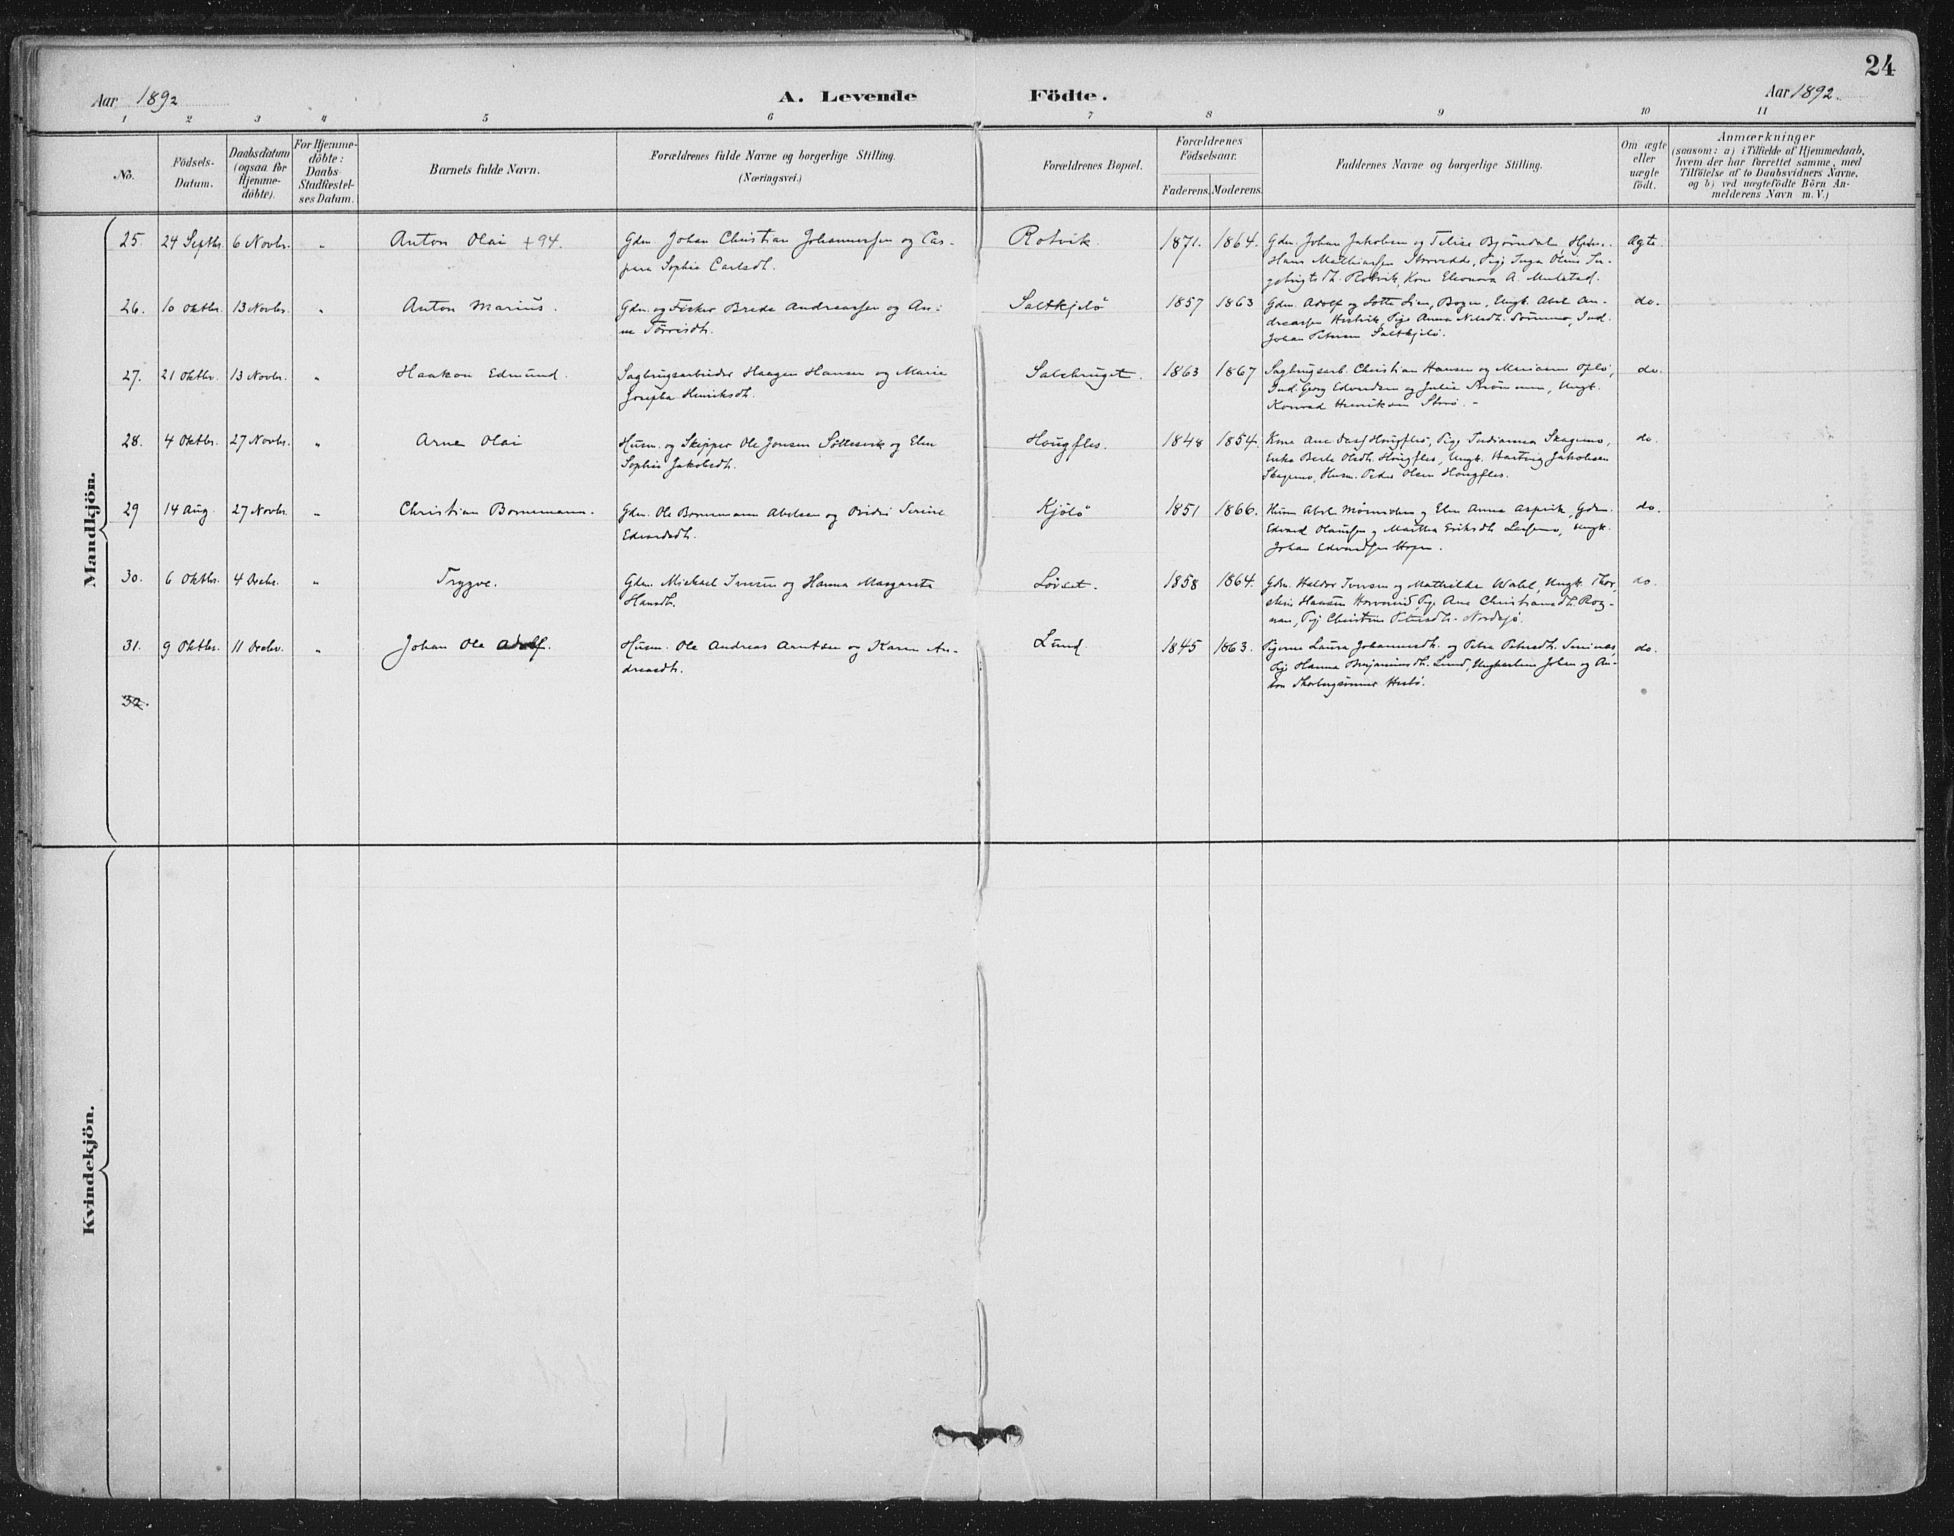 24
Aar 1892
A. Levende Födte.
Aar 1892.
1 2 3 4 5 6 7 8 9 10 11
No.
Födsels-
Datum.
Daabsdatum
(ogsaa for
Hjemme-
döbte).
For Hjemme-
döbte:
Daabs-
Stadfæstel-
ses Datum.
Barnets fulde Navn.
Forældrenes fulde Navne og borgerlige Stilling.
(Næringsvei.)
Forældrenes Bopæl.
Forældrenes
Födselsaar.
Faderens. Moderens.
Faddernes Navne og borgerlige Stilling.
Om ægte
eller
uægte
födt.
Anmærkninger
(saasom: a) i Tilfælde af Hjemmedaab,
hvem der har forrettet samme, med
Tilföielse af to Daabsvidners Navne.
og b) ved uægtefödte Börn An-
melderens Navn m. V.)
Mandkjön.
25. 24 Septbr. 6 Novbr. „ Anton Olai +94. Gdm. Johan Christian Johannessen og Cas-
para Sophia Carlsdt. Rotvik. 1871. 1864. Gdm. Johan Jakobsen og Bjørndal,
Hans Mathiassen Inga Oline In-
gebrigtsdt. Rotvik, Kone Eleonora A. Mulstad. Ægte.
26. 10 Oktbr. 13 Novbr. „ Anton Marius. Gdm. og Fisker Brede Andreassen og An-
ne Saltkjelø 1857 1863 Gdm. Adolf og Lotte Lien, Bogen, Ungk. Abel An-
dreassen Pige Anna Nilsdt. Ind.
Johan Petersen Saltkjelø. do.
27. 21 Oktbr. 13 Novbr. „ Haakon Edmund. Sagbrugsarbeider Haagen Hansen og Marie
Josepha Henriksdt. Salsbruget. 1863 1867 Sagbrugsarb. Christian Hansen og Opló,
Ind. Georg Edvardsen og Julie Ungk.
Konrad Henriksen do.
28. 4 Oktbr. 27 Novbr. „ Arne Olai Husm. og Skipper Ole Jonsen og Elen
Sophie Jakobsdt. Hougfles. 1848 1854. Kone Ane Hougfles, Pige Indianna Skagemo,
Enke Berle Olsdt. Hougfles, Ungk. Hartvig Jakobsen
Skagemo, Husm. Peder Olsen Hougfles. do.
29 14 Aug. 27 Novbr. „ Christian Bornemann. Gdm. Ole Bornemann Abelsen og Serine
Edvardsdt. Kjølø 1851 1866. Husm. Abel og Elen Anna Gdm.
Edvard Olaussen og Martha Eriksdt. Ungk.
Johan Edvardsen Hopen. do.
30. 6 Oktbr. 4 Decbr. „ Trygve. Gdm. Michael Iversen og Hanna Margareta
Hansdt. Løvset. 1858 1864. Gdm. Haldor Iversen og Mathilde Wahl, Ungk. Thor-
Hansen Pige Ane Christiansdt. Rog-
nan, Pige Christine Petersdt. do.
31. 9 Oktbr. 11 Decbr. „ Johan Ole Adolf. Husm. Ole Andreas Arntsen og Karen An-
dreasdt. Lund 1845 1863. Pigerne Laura Johannesdt. og Petra Petersdt.
Pige Hanna Benjaminsdt. Lund, Ungkarlene Johan og An-
ton do.
32.
Kvindekjön.